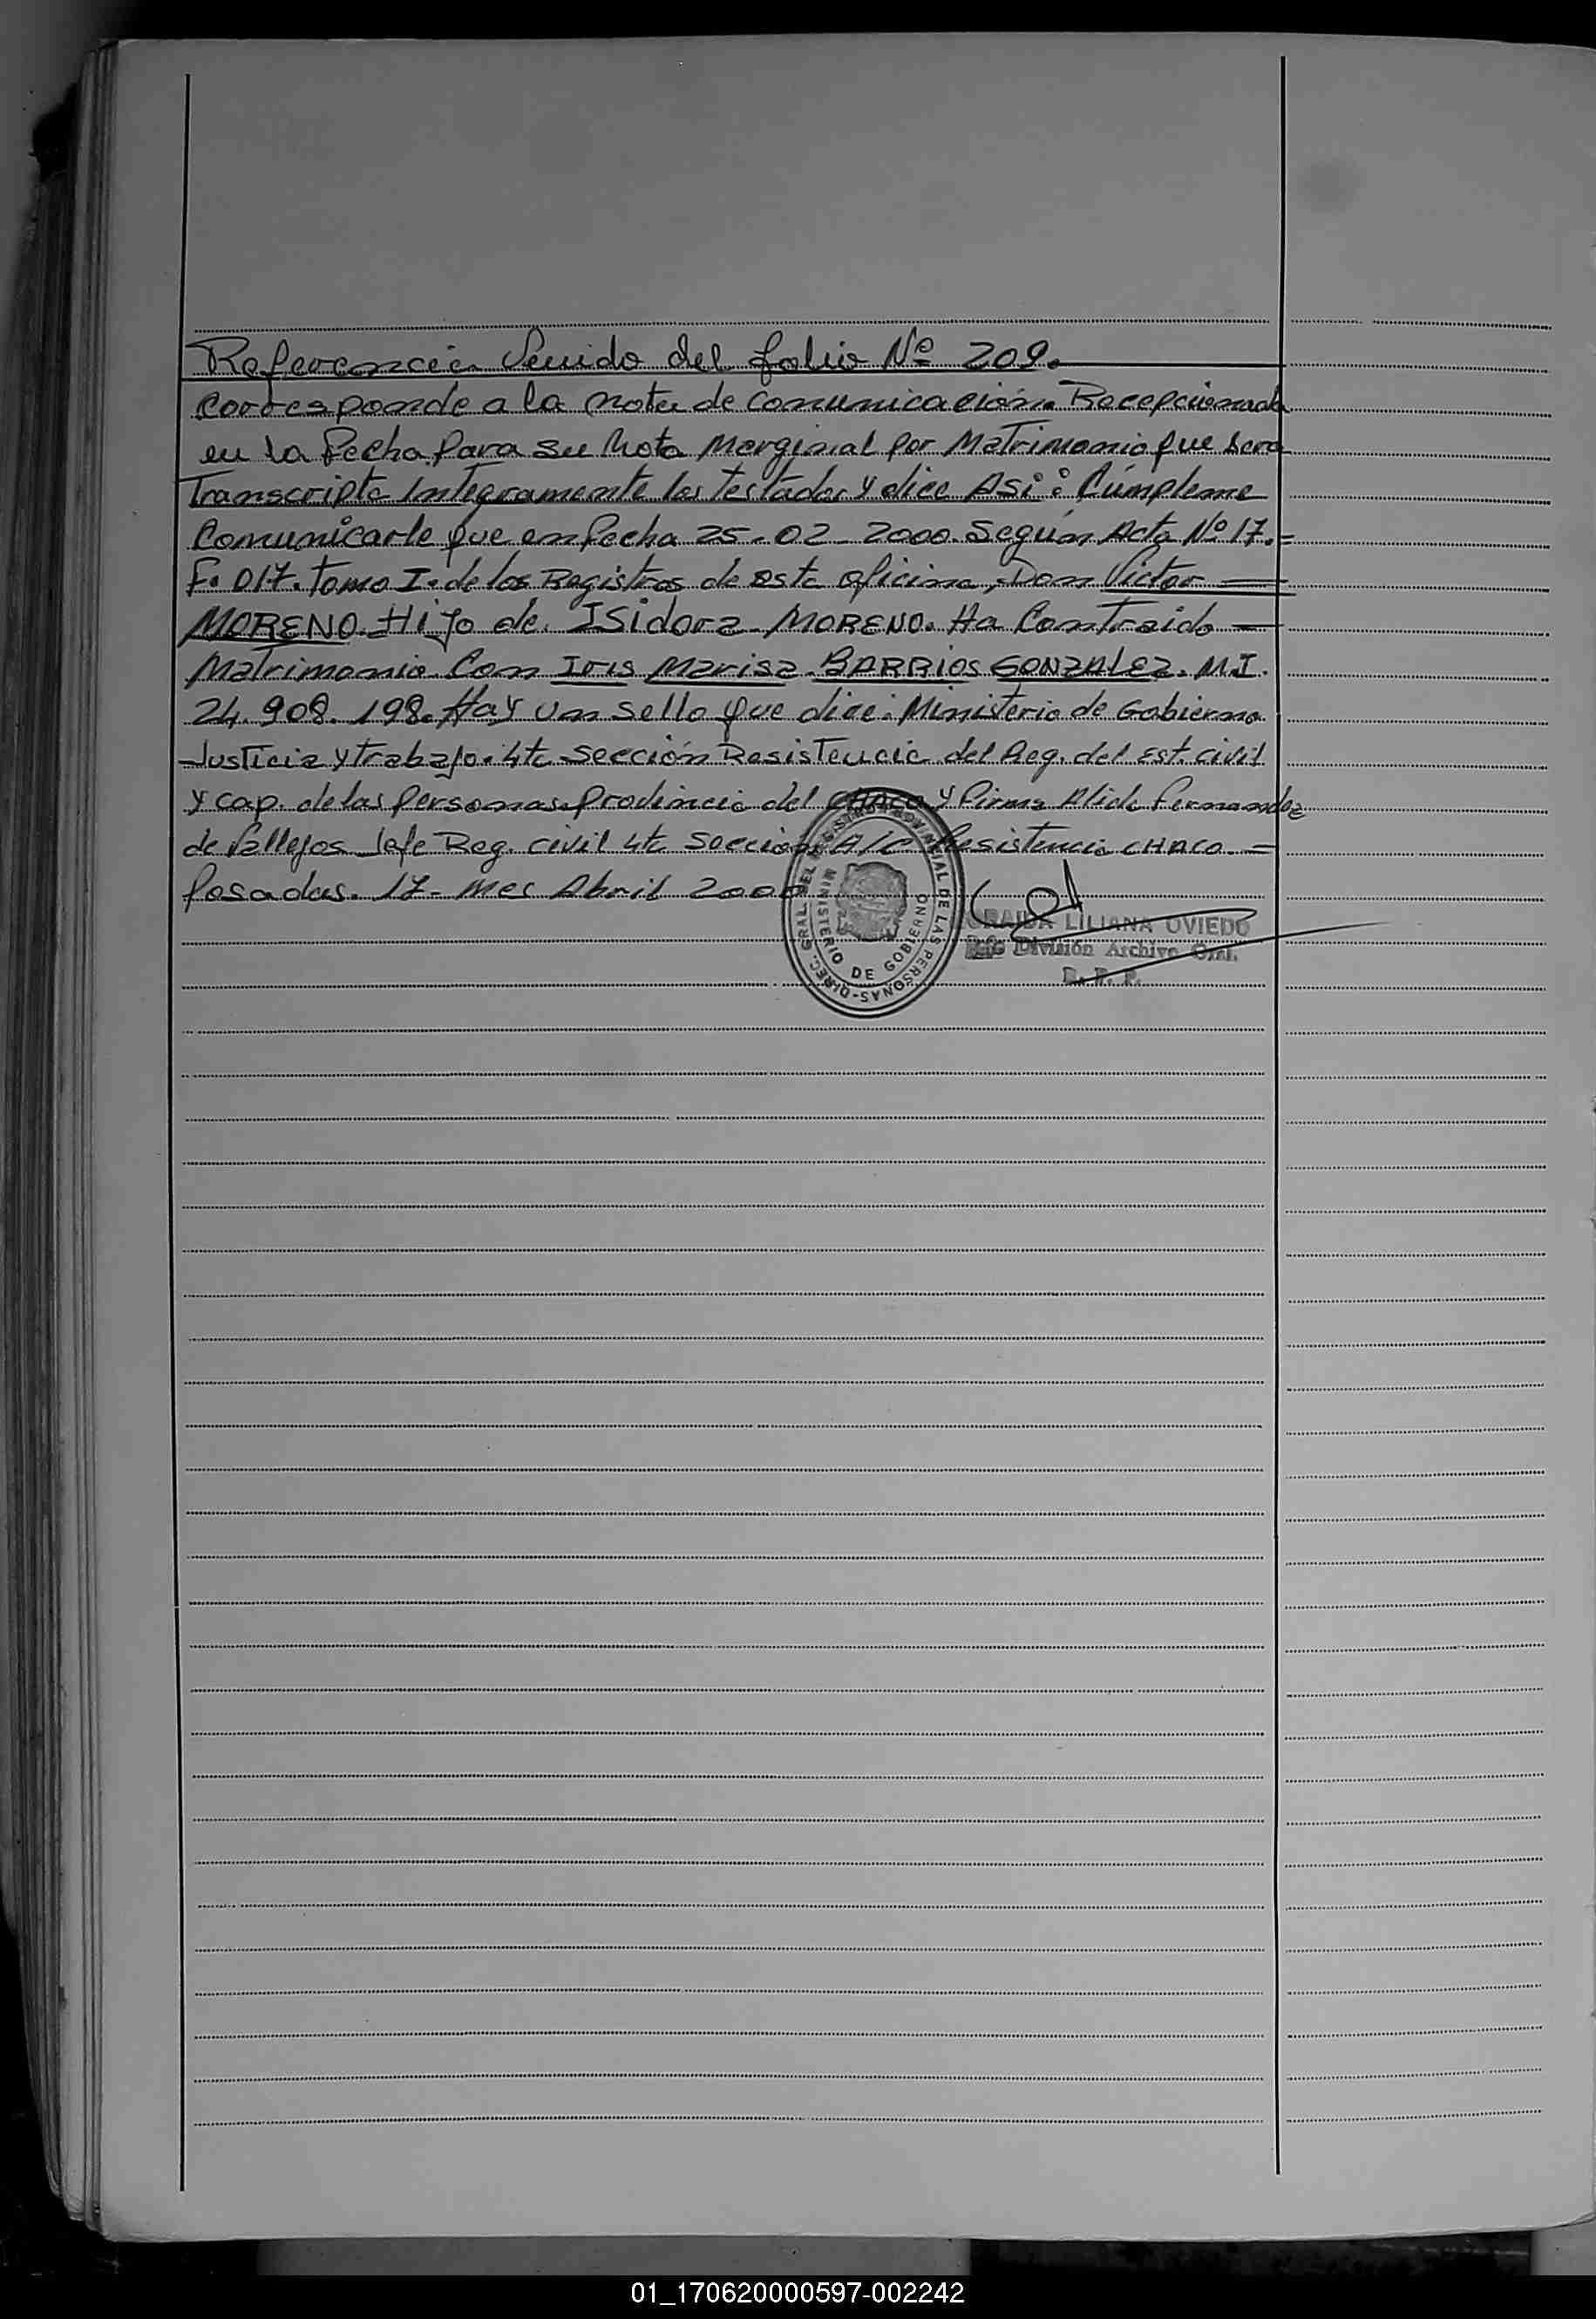 Referencia Venido del folio Nº 209.
Corresponde a la nota de comunicación. Recepcionada
en la Fecha para su Nota Marginal por Matrimonio que sera
Transcripta Integramente los testados y dice Asi: Cúmpleme
Comunicarle que en fecha 25-02-2000. Según Acta Nº 17.=
F. 017. Tomo I. de los Registros de esta oficina, Don Victor —
MORENO. Hijo de. ISidora MORENO. Ha Contraido —
Matrimonio. Con Iris Marisa BARRIOS GONZALEZ. M.I.
24.908.198. Hay un sello que dice: Ministerio de Gobierno
Justicia y trabajo. 4ta Sección Resistencia del Reg. del Est. civil
y cap. de las personas. provincia del CHACO y Firma Alida Fernandez
de Vallejos Jefe Reg. civil 4ta Sección A/C Resistencia CHACO. =
Posadas. 17- Mes Abril 2000
DIREC. GRAL. DEL REGISTRO PROVINCIAL DE LAS PERSONAS-
MINISTERIO DE GOBIERNO
LILIANA OVIEDO
Jefe División Archivo Gral.
R. P. P.
01_170620000597-002242